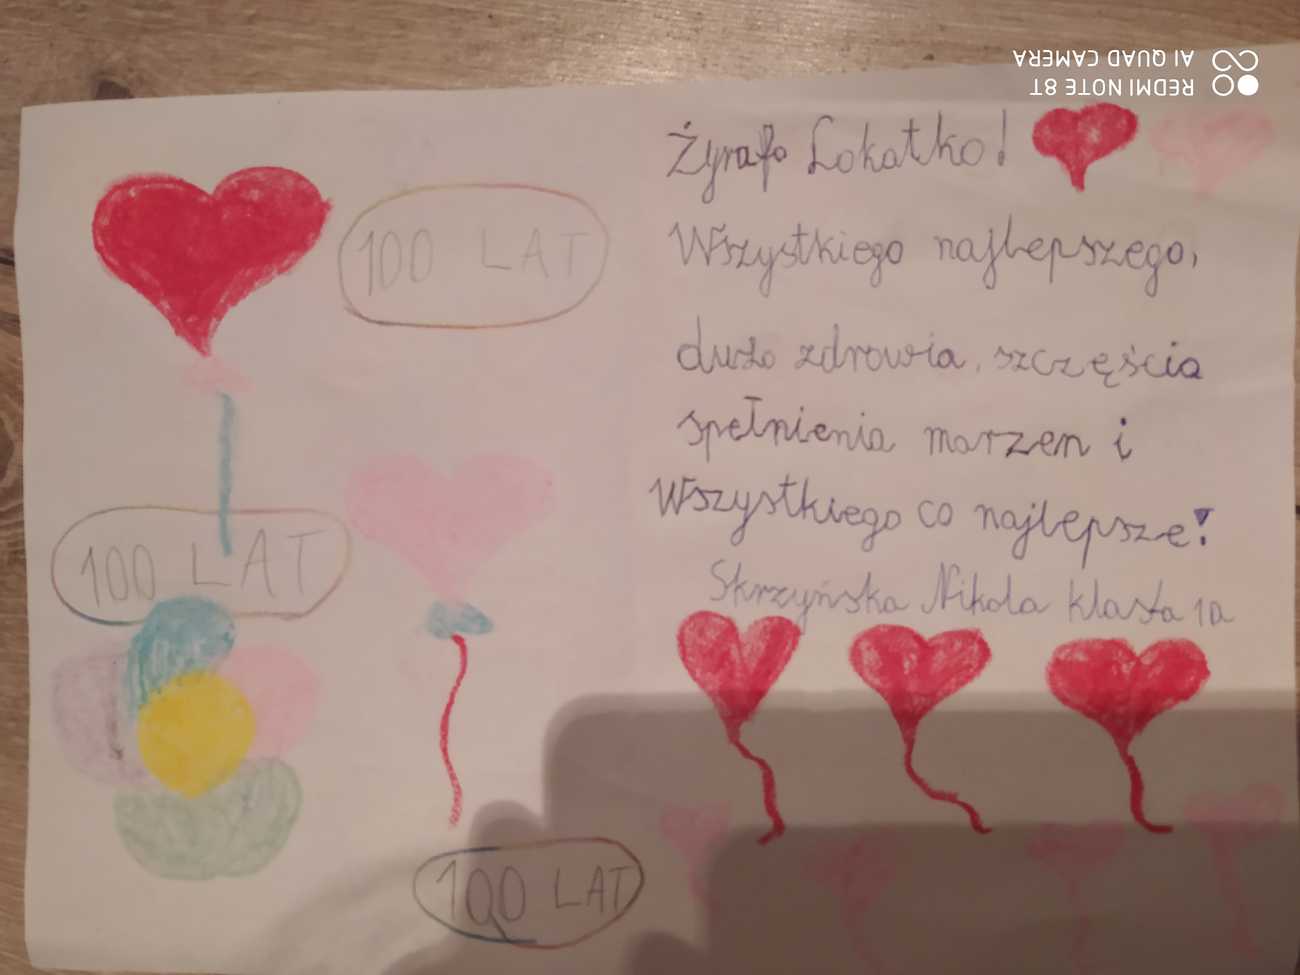 100 LAT
100 LAT
100 LAT
Żyrafo Lokatko!
Wszystkiego najlepszego,
dużo zdrowia, szczęścia
spełnienia marzen i
Wszystkiego co najlepsze!
Skrzyńska Nikola klasa 1a
REDMI NOTE 8T
AI QUAD CAMERA